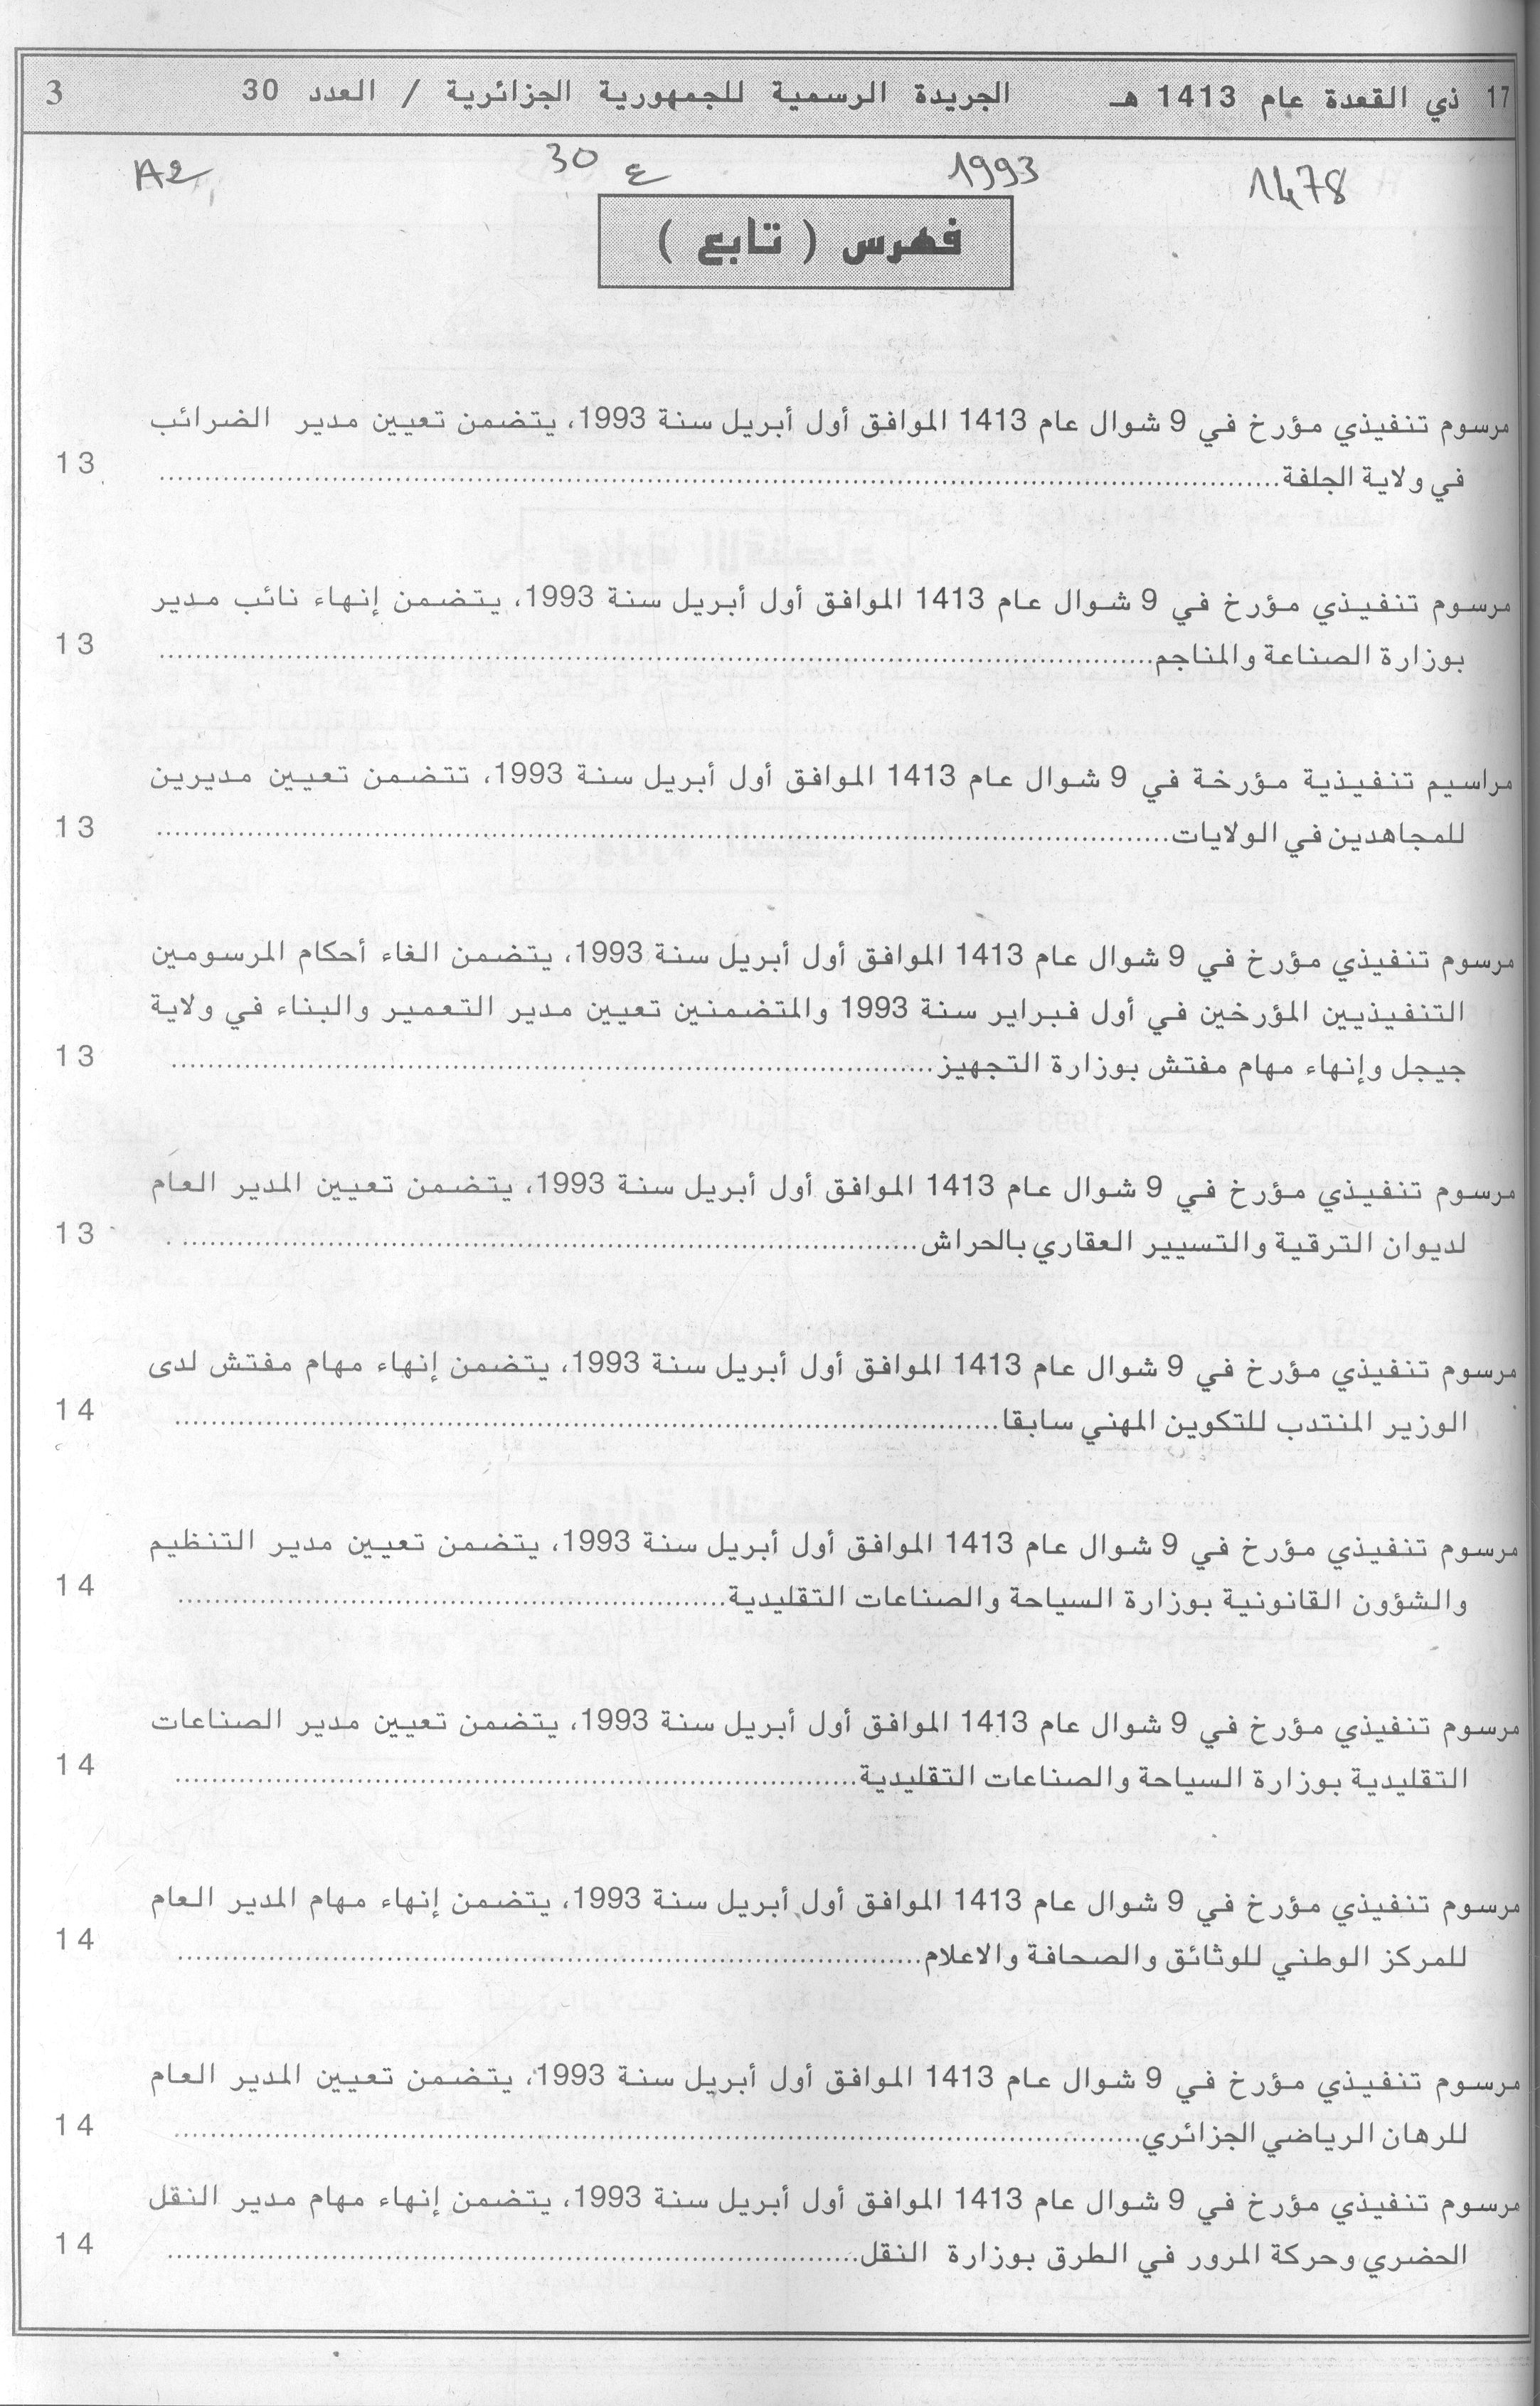 17 ذي القعدة عام 1413 هـ الجريدة الرسمية للجمهورية الجزائرية / العدد 30 3
1478 1993 ع 30 A2
فهرس ( تابع )
مرسوم تنفيذي مؤرخ في 9 شوال عام 1413 الموافق أول أبريل سنة 1993، يتضمن تعيين مدير الضرائب
في ولاية الجلفة 13
مرسوم تنفيذي مؤرخ في 9 شوال عام 1413 الموافق أول أبريل سنة 1993، يتضمن إنهاء نائب مدير
بوزارة الصناعة والمناجم 13
مراسيم تنفيذية مؤرخة في 9 شوال عام 1413 الموافق أول أبريل سنة 1993، تتضمن تعيين مديرين
للمجاهدين في الولايات 13
مرسوم تنفيذي مؤرخ في 9 شوال عام 1413 الموافق أول أبريل سنة 1993، يتضمن الغاء أحكام المرسومين
التنفيذيين المؤرخين في أول فبراير سنة 1993 والمتضمنين تعيين مدير التعمير والبناء في ولاية
جيجل وإنهاء مهام مفتش بوزارة التجهيز 13
مرسوم تنفيذي مؤرخ في 9 شوال عام 1413 الموافق أول أبريل سنة 1993، يتضمن تعيين المدير العام
لديوان الترقية والتسيير العقاري بالحراش 13
مرسوم تنفيذي مؤرخ في 9 شوال عام 1413 الموافق أول أبريل سنة 1993، يتضمن إنهاء مهام مفتش لدى
الوزير المنتدب للتكوين المهني سابقا 14
مرسوم تنفيذي مؤرخ في 9 شوال عام 1413 الموافق أول أبريل سنة 1993، يتضمن تعيين مدير التنظيم
والشؤون القانونية بوزارة السياحة والصناعات التقليدية 14
مرسوم تنفيذي مؤرخ في 9 شوال عام 1413 الموافق أول أبريل سنة 1993، يتضمن تعيين مدير الصناعات
التقليدية بوزارة السياحة والصناعات التقليدية 14
مرسوم تنفيذي مؤرخ في 9 شوال عام 1413 الموافق أول أبريل سنة 1993، يتضمن إنهاء مهام المدير العام
للمركز الوطني للوثائق والصحافة والاعلام 14
مرسوم تنفيذي مؤرخ في 9 شوال عام 1413 الموافق أول أبريل سنة 1993، يتضمن تعيين المدير العام
للرهان الرياضي الجزائري 14
مرسوم تنفيذي مؤرخ في 9 شوال عام 1413 الموافق أول أبريل سنة 1993، يتضمن إنهاء مهام مدير النقل
الحضري وحركة المرور في الطرق بوزارة النقل 14